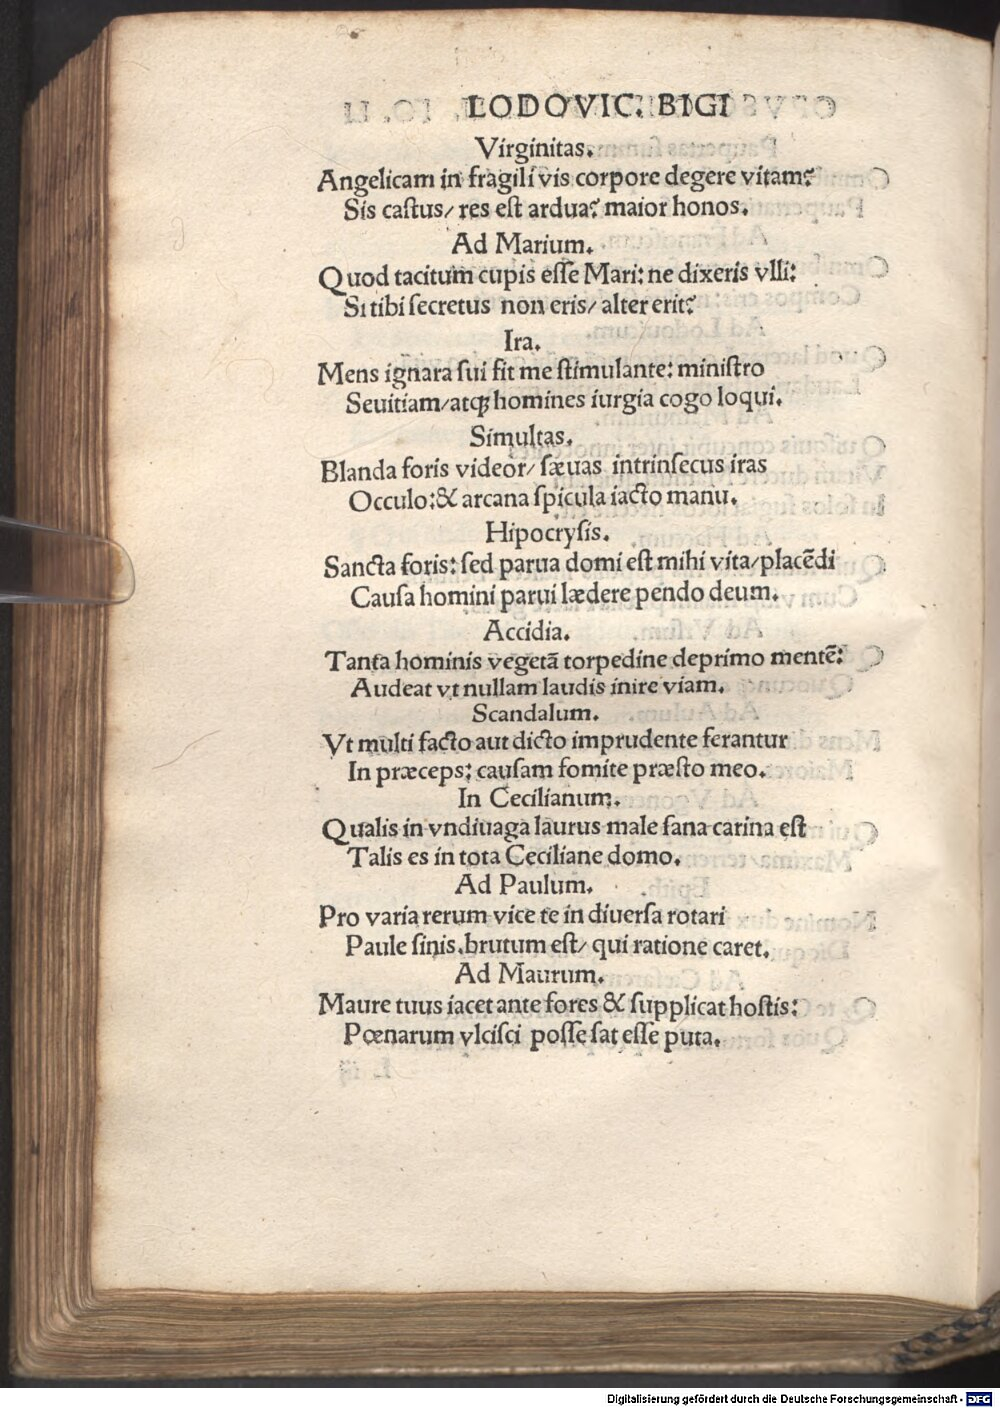 LODOVIC. BIGI
Virginitas.
Angelicam in fragili vis corpore degere vitam?
Sis castus/ res est ardua? maior honos.
Ad Marium.
Quod tacitum cupis esse Mari: ne dixeris vlli:
Si tibi secretus non eris/ alter erit?
Ira.
Mens ignara sui fit me stimulante: ministro
Seuitiam/atqꝫ homines iurgia cogo loqui.
Simultas.
Blanda foris videor/ sæuas intrinsecus iras
Occulo:& arcana spicula iacto manu.
Hipocrysis.
Sancta foris: sed parua domi est mihi vita/placēdi
Causa homini parui lædere pendo deum.
Accidia.
Tanta hominis vegetā torpedine deprimo mentē:
Audeat vt nullam laudis inire viam.
Scandalum.
Vt multi facto aut dicto imprudente ferantur
In præceps: causam fomite præsto meo.
In Cecilianum.
Qualis in vndiuaga laurus male sana carina est
Talis es in tota Ceciliane domo.
Ad Paulum.
Pro varia rerum vice te in diuersa rotari
Paule sinis.brutum est/ qui ratione caret.
Ad Maurum.
Maure tuus iacet ante fores & supplicat hostis:
Pœnarum vlcisci posse sat esse puta.
Digitalisierung gefördert durch die Deutsche Forschungsgemeinschaft - DFG